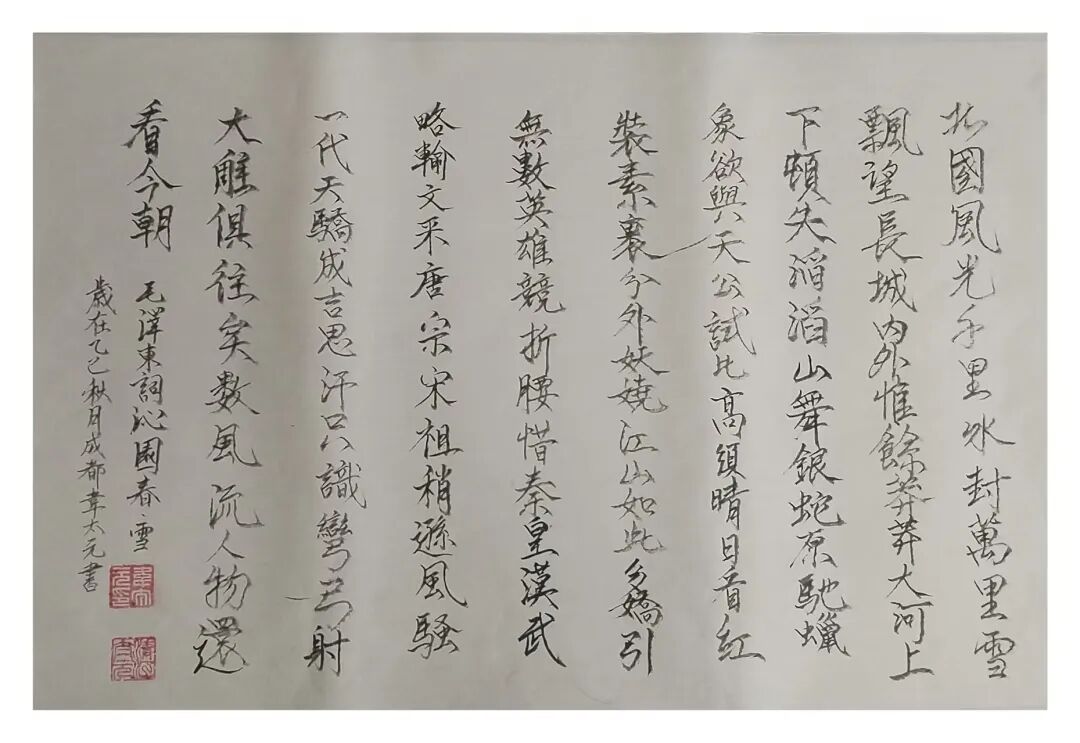 北國風光千里冰封萬里雪
飄望長城內外惟餘莽莽大河上
下頓失滔滔山舞銀蛇原馳蠟
象欲與天公試比高須晴日看紅
裝素裹分外妖嬈江山如此多嬌引
無數英雄競折腰惜秦皇漢武
略輸文采唐宗宋祖稍遜風騷
一代天驕成吉思汗只識彎弓射
大雕俱往矣數風流人物還
看今朝
毛澤東詞沁園春·雪
歲在乙巳秋月成都韋太元書